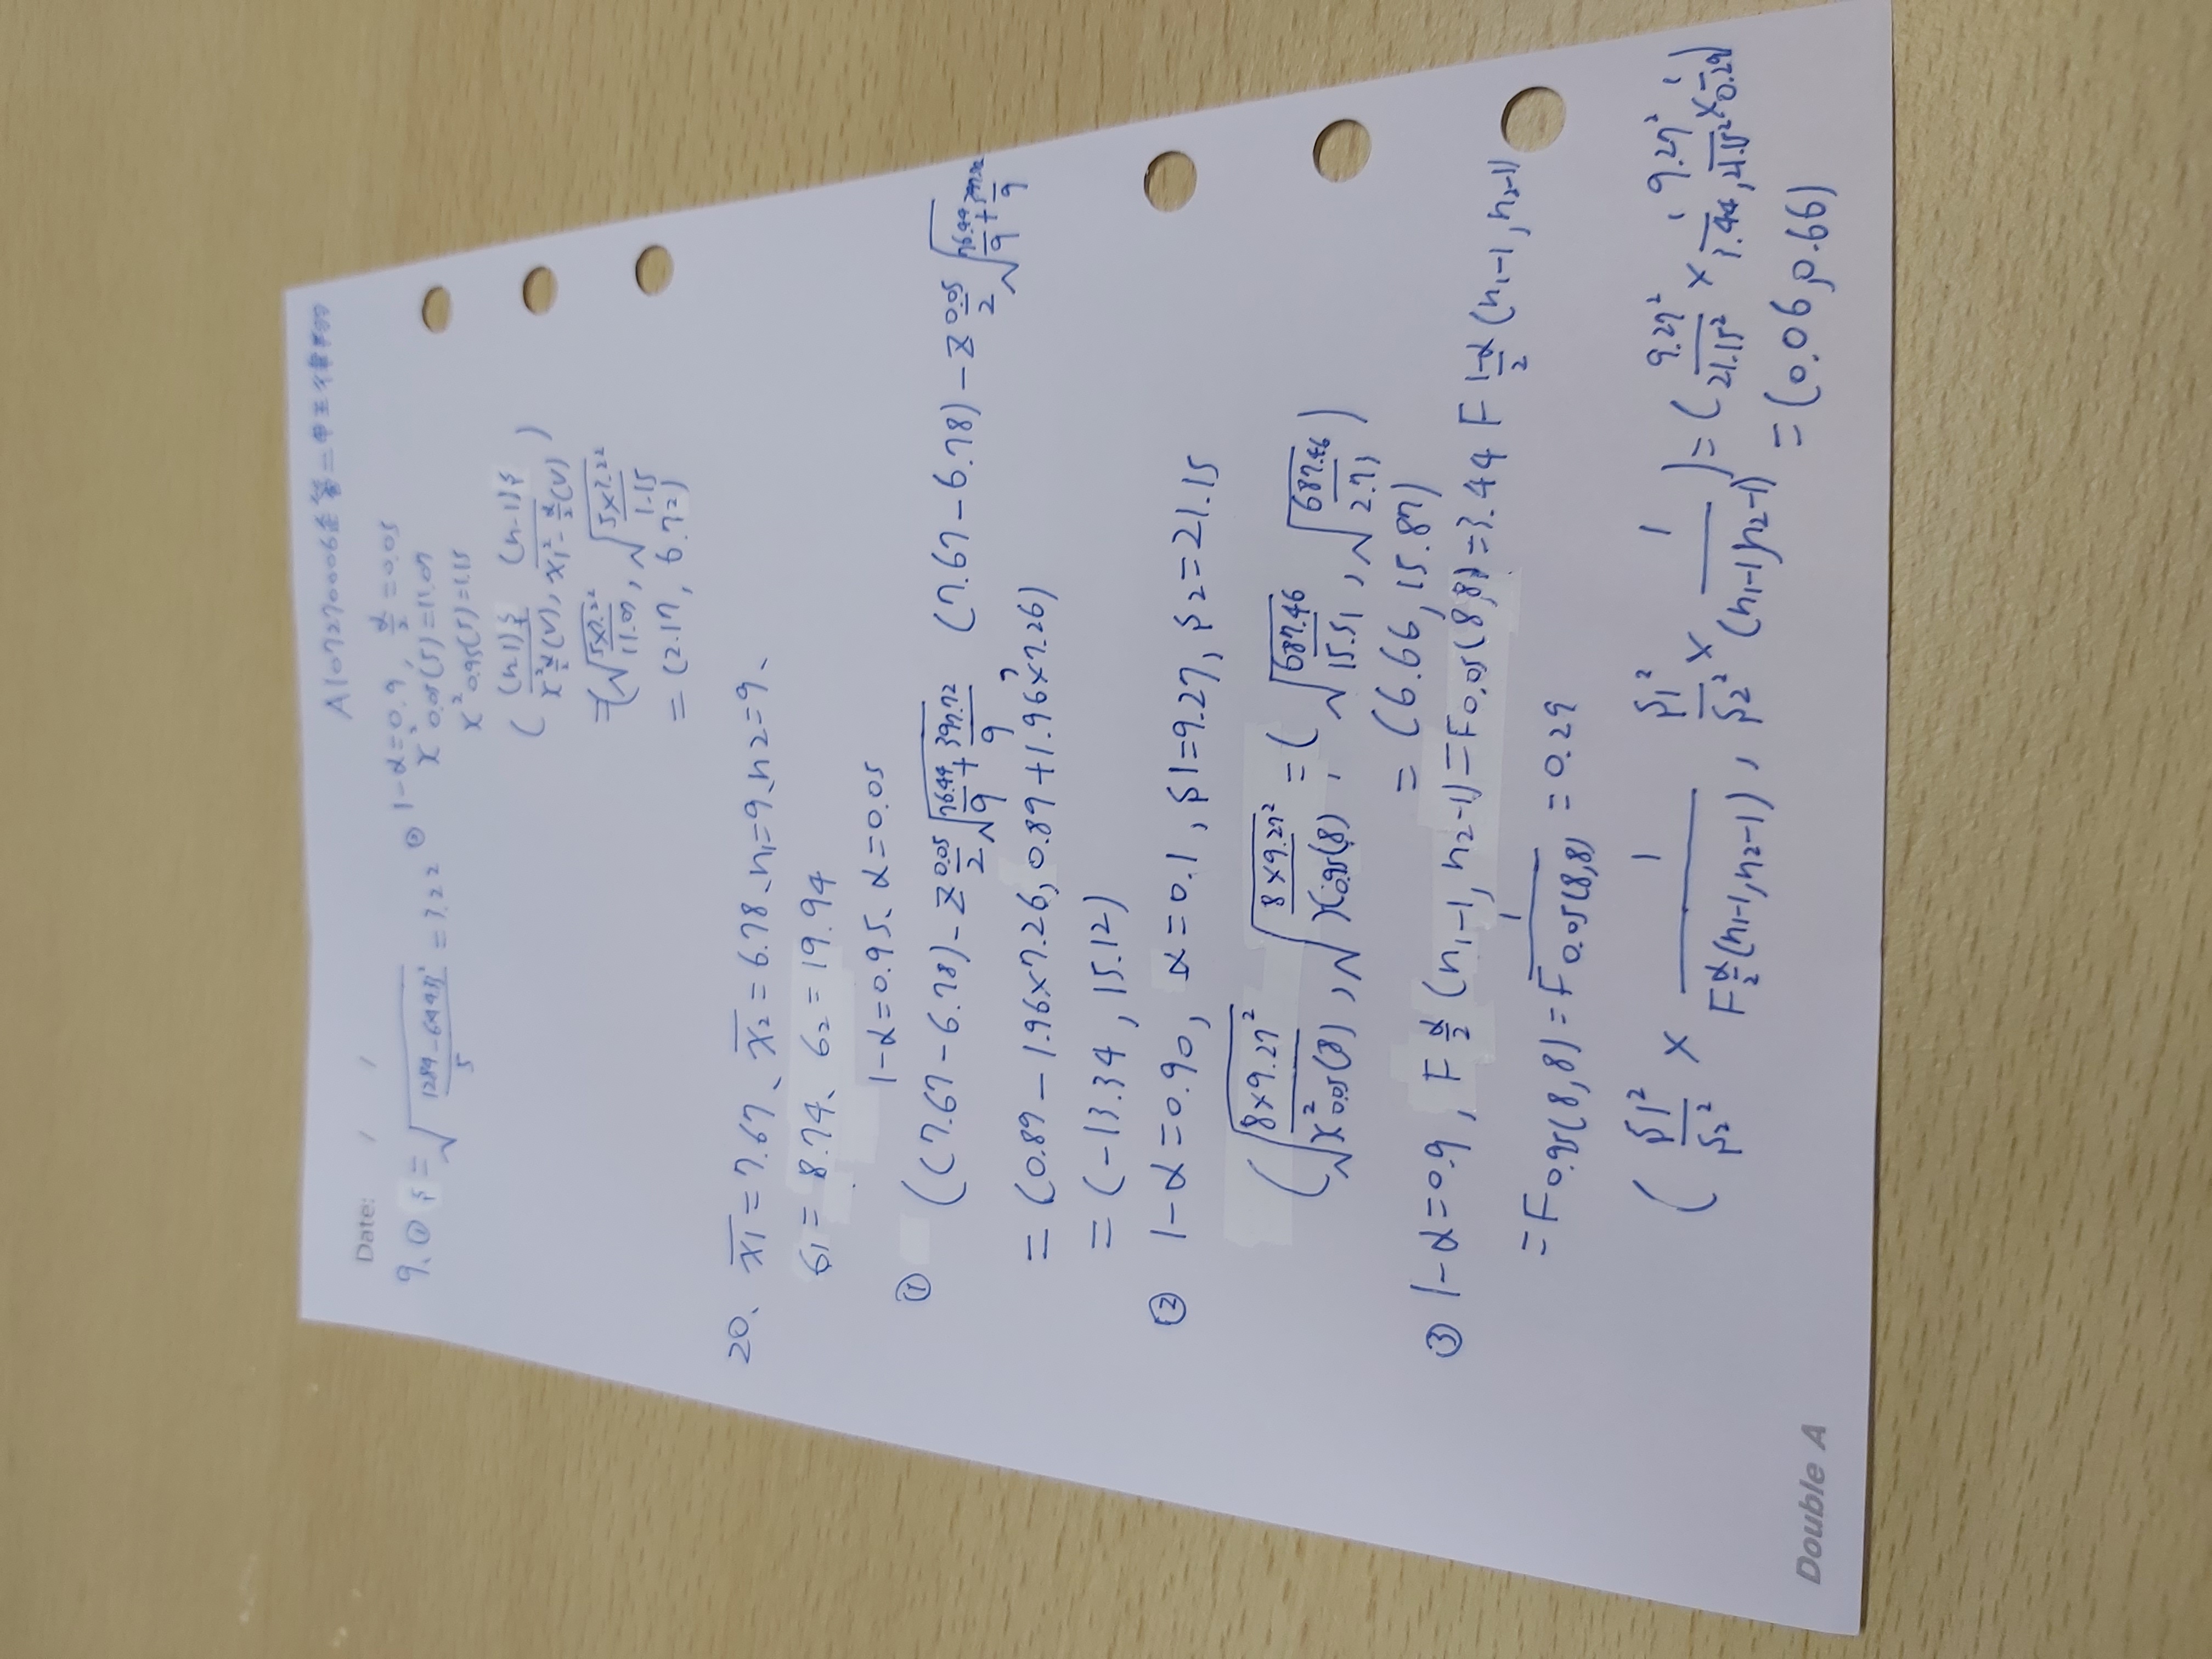 A107270006企管二甲王
Date: / /
9、① s = √((1289 - 6×)² / 5) = 3.22
② 1-α=0.9, α/2 =0.05
x² 0.05(5)=11.07
x² 0.95(5)=1.15
( (n-1)s / x² α/2 (v), (n-1)s / x1² - α/2 (v) )
=(√(5×3.22 / 11.07), √(5×3.22 / 1.15)
= (2.17, 6.72)
20、 x̄1 = 7.67、x̄2 = 6.78、n1=9、n2=9、
σ1 = 8.74、σ2 = 19.94
1-α=0.95、α=0.05
① ((7.67-6.78)-z 0.05/2 √(76.44/9 + 397.72/9), (7.67-6.78)-z 0.05/2 √(76.44/9 + 397.72/9)
= (0.89-1.96×7.26, 0.89+1.96×7.26)
= (-13.34, 15.12)
② 1-α=0.90, α=0.1, s1=9.27, s2=21.15
(√(8×9.27² / x² 0.05(8)), √(8×9.27² / x 0.95(8)) = (√(687.46 / 15.51), √(687.46 / 2.73))
= (6.66, 15.87)
③ 1-α=0.9, F α/2 (n1-1, n2-1)=F0.05(8,8)=3.44 F 1-α/2 (n1-1, n2-1)
=F0.95(8,8)= 1/F0.05(8,8) = 0.29
( s1²/s2² × 1/F α/2 (n1-1, n2-1), s1²/s2² × 1/(n1-1, n2-1) ) = ( 9.27²/21.15² × 1/3.44, 9.27²/21.15² × 1/0.29)
= (0.06, 0.66)
Double A